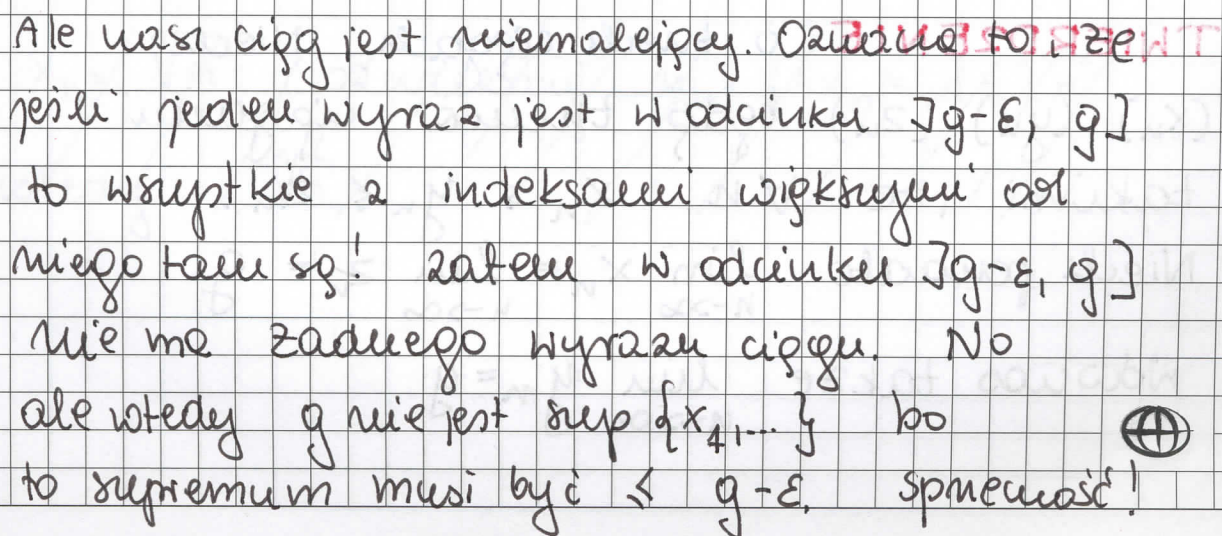 Ale nasz ciąg jest niemalejący. Oznacza to, że
jeśli jeden wyraz jest w odcinku ]g-ε, g]
to wszystkie z indeksami większymi od
niego tam są! zatem w odcinku ]g-ε, g]
nie ma żadnego wyrazu ciągu. No
ale wtedy g nie jest sup{x₁,...} bo
to supremum musi być ≤ g-ε. sprzeczność!